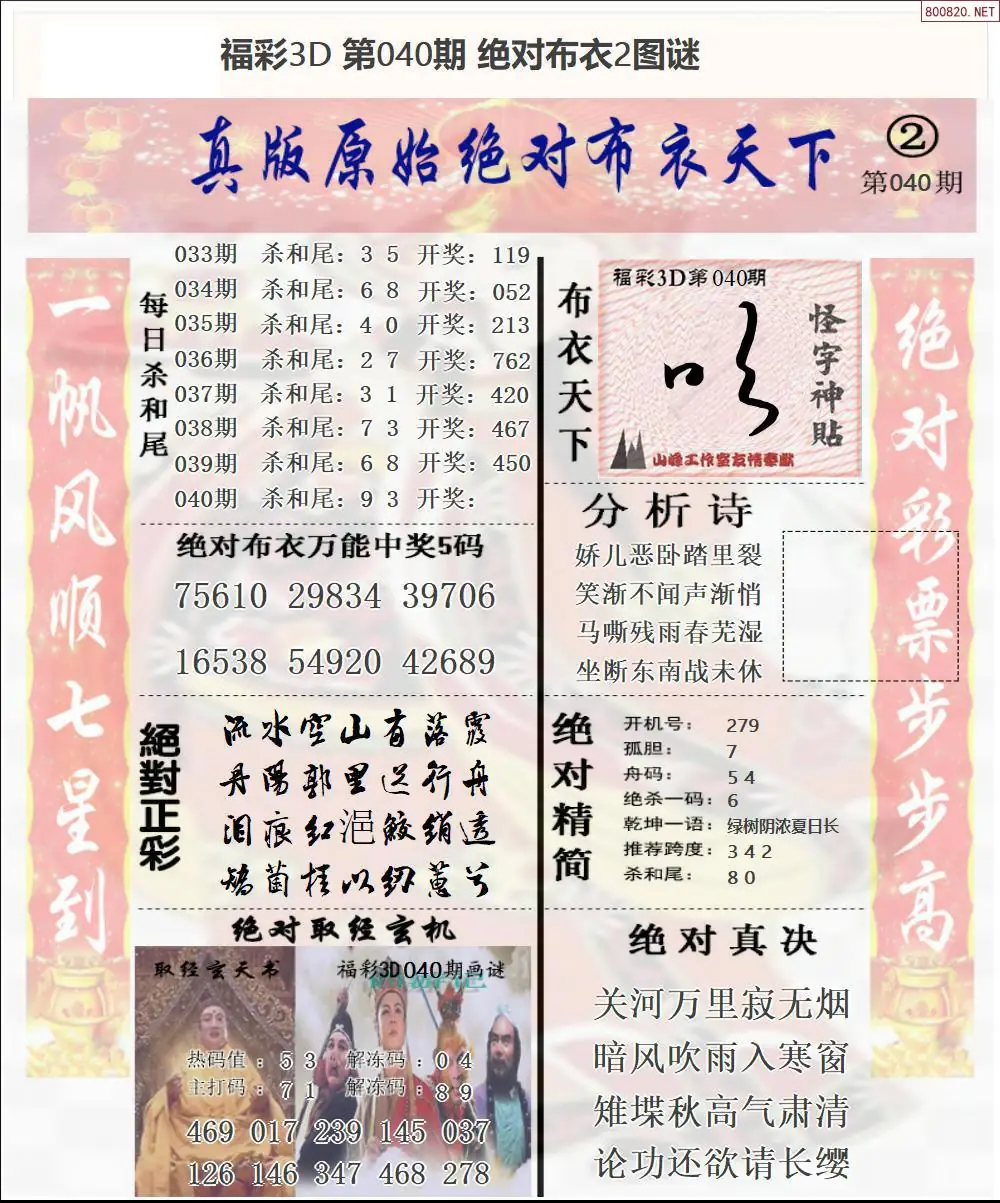 800820.NET
福彩3D 第040期 绝对布衣2图谜
真版原始绝对布衣天下
②
第040期
一帆风顺七星到
每日杀和尾
033期 杀和尾：3 5 开奖：119
034期 杀和尾：6 8 开奖：052
035期 杀和尾：4 0 开奖：213
036期 杀和尾：2 7 开奖：762
037期 杀和尾：3 1 开奖：420
038期 杀和尾：7 3 开奖：467
039期 杀和尾：6 8 开奖：450
040期 杀和尾：9 3 开奖：
绝对布衣万能中奖5码
75610 29834 39706
16538 54920 42689
絕對正彩
流水空山有落霞
丹陽郭里送行舟
泪痕红浥鲛绡透
矯菌桂以纫蕙兮
绝对取经玄机
取经玄天书
福彩3D040期画谜
热码值：5 3 解冻码：0 4
主打码：7 1 解冻码：8 9
469 017 239 145 037
126 146 347 468 278
布衣天下
福彩3D第040期
怪字神貼
山峰工作室友情奉献
分析诗
娇儿恶卧踏里裂
笑渐不闻声渐悄
马嘶残雨春芜湿
坐断东南战未休
绝对精简
开机号： 279
孤胆： 7
舟码： 5 4
绝杀一码：6
乾坤一语：绿树阴浓夏日长
推荐跨度：3 4 2
杀和尾： 8 0
绝对真决
关河万里寂无烟
暗风吹雨入寒窗
雉堞秋高气肃清
论功还欲请长缨
绝对彩票步步高